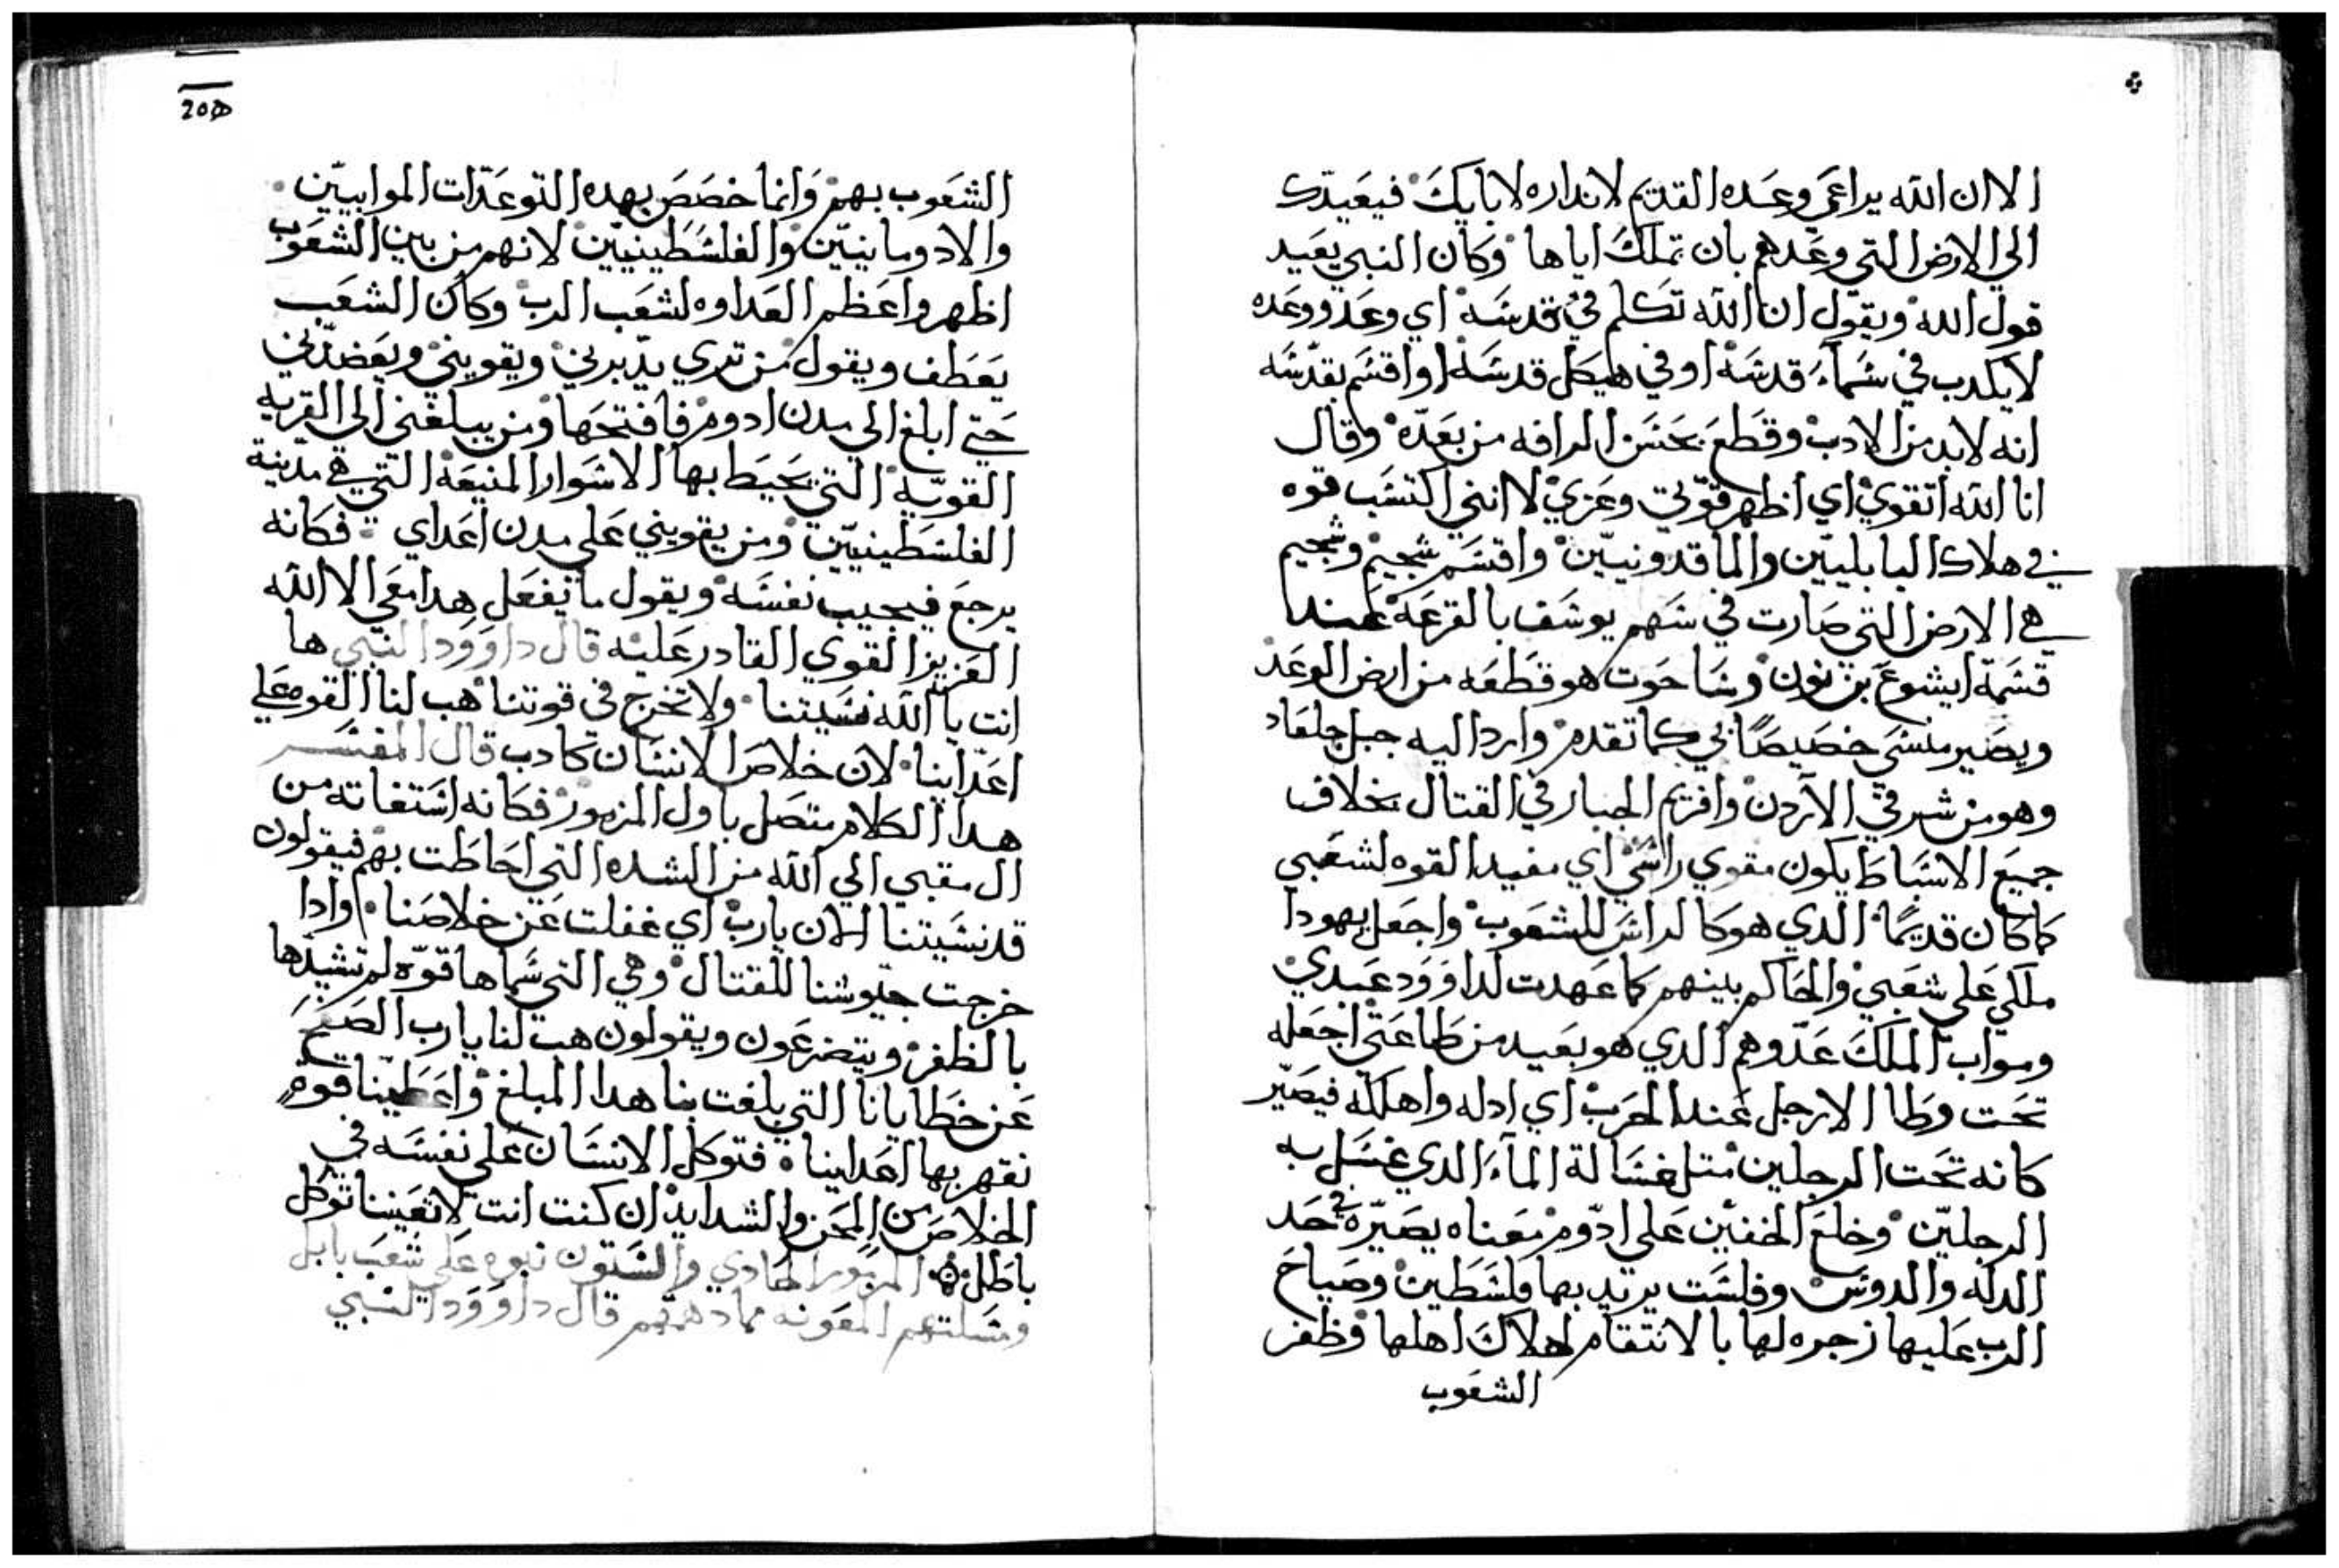 الا ان الله يراعي وعده القديم لانداره لابايك فيعيدك
الي الارض التي وعدهم بان تملك اياها وكان النبي يعيد
قول الله ويقول ان الله تكلم في قدسه اي وعد ووعده
لا يكدب في سماء قدسه او في هيكل قدسه او اقسم بقدسه
انه لابد من الادب وقطع بحسن الرافه من بعده وقال
انا الله اتقوي اي اظهر قوتي وعزي لا انني اكتسب قوه
في هلاك البابليين والماقدونيين واقسم شجيم وشجيم
هي الارض التي صارت في سهم يوسف بالقرعه عندما
قسمه ايشوع بن نون وساحوت هو قطعه من ارض الوعد
ويصير منسي خصيصا بي كما تقدم واردا اليه جبل جلعاد
وهو من شرقي الآردن وافريم الجبار في القتال بخلاف
جميع الاسباط يكون مقوي راسي اي مفيد القوه لشعبي
كما كان قديما الدي هو كالراس للشعوب واجعل يهودا
ملكي علي شعبي والحاكم بينهم كما عهدت لداوود عبدي
ومواب الملك عدوهم الدي هو بعيد من طاعتي اجعله
تحت وطا الارجل عند الحرب اي ادله واهلكه فيصير
كانه تحت الرجلين متل غسالة الماء الدي غسل به
الرجلين وخلع الخفين علي ادوم معناه يصيره في حد
الدله والدوس وفلست يريد بها فلسطين وصياح
الرب عليها زجره لها بالانتقام لهلاك اهلها وظفر
الشعوب
205
الشعوب بهم وانما خصص بهده التوعدات الموابيين
والادومانيين والفلسطينيين لانهم من بين الشعوب
اظهروا اعظم العداوه لشعب الرب وكان الشعب
يعطف ويقول من تري يدبرني ويقويني ويعضدني
حتي ابلغ الي مدن ادوم فافتحها ومن يبلغني الي القريه
القويه التي يحيط بها الاسوار المنيعه التي هي مدينة
الفلسطينيين ومن يقويني علي مدن اعداي فكانه
يرجع فيجيب نفسه ويقول ما يفعل هدا معي الا الله
العزيز القوي القادر عليه قال داوود النبي ها
انت يا الله نسيتنا ولا تخرج في قوتنا هب لنا القوه علي
اعداينا لان خلاص الانسان كادب قال المفسر
هدا الكلام يتصل باول المزمور فكانه استغاته من
ال مقبي الي الله من الشده التي احاطت بهم فيقولون
قد نسيتنا الان يارب اي غفلت عن خلاصنا وادا
خرجت جيوشنا للقتال وهي التي سماها قوه لم تشيدها
بالظفر ويتضرعون ويقولون هب لنا يارب الصفح
عن خطايانا التي بلغت بنا هدا المبلغ واعطينا قوه
نقهر بها اعداينا فتوكل الانسان علي نفسه في
الخلاص من المحن والشدايد ان كنت انت لا تعيننا توكل
باطل المزمور الحادي والستون نبوه علي شعب بابل
ومسلتهم المعونه مما دهمهم قال داوود النبي